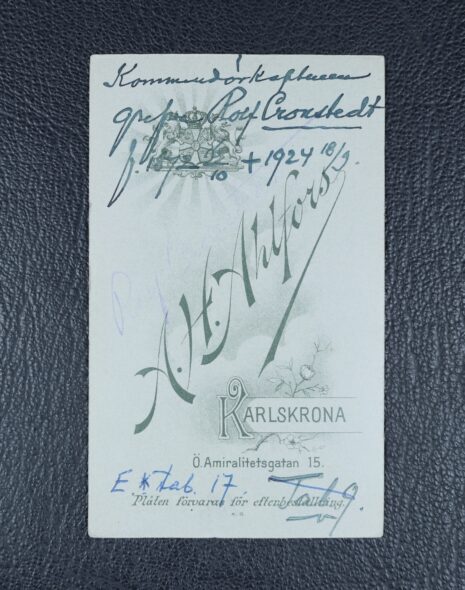 Kommendörkaptenen
grefve Rolf Cronstedt
+ 1924 18/9.
A.H. Ahlfors
KARLSKRONA
Ö. Amiralitetsgatan 15.
E * tab. 17
Plåten förvaras för efterbeställning.